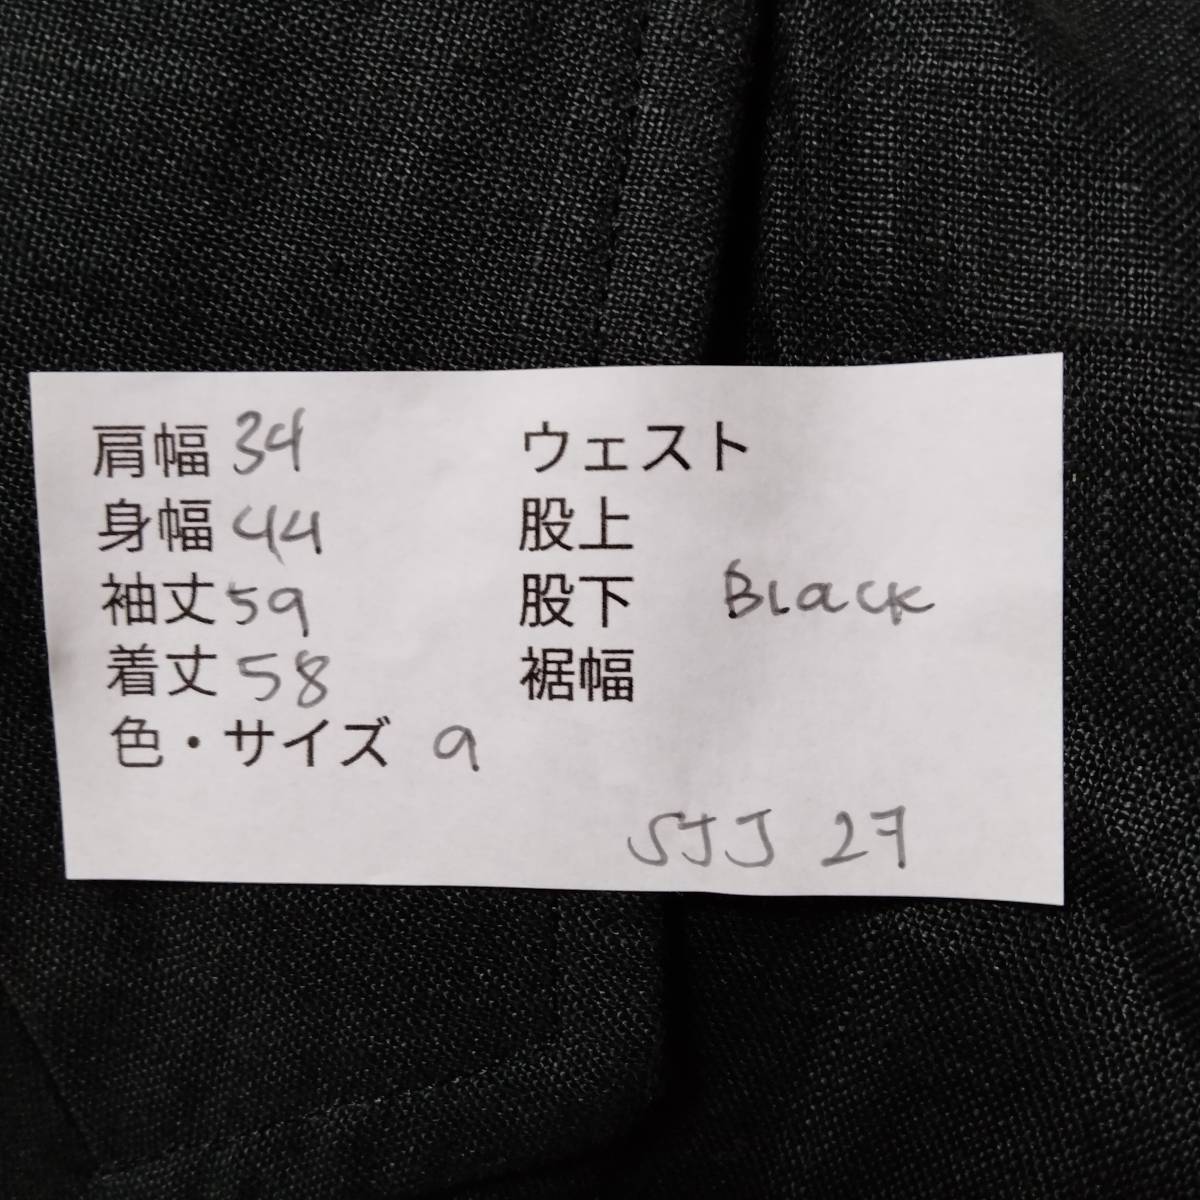 肩幅 34 ウェスト
身幅 44 股上
袖丈 59 股下 Black
着丈 58 裾幅
色・サイズ 9
SJJ 27